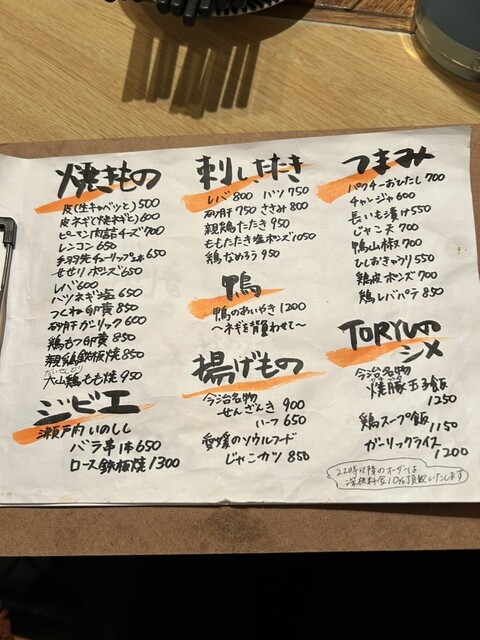 焼きもの
皮(生キャベツと) 500
皮ネギ(焼ネギと) 600
ピーマン肉詰チーズ 700
レンコン 650
手羽先チューリップ2本 650
せせり ポンズ 650
レバ 600
ハツネギ塩 650
つくね卵黄 850
砂肝ガーリック 600
鶏もつ卵黄 850
親鶏鉄板焼 850
だいせんどり
大山鶏もも焼 950
ジビエ
瀬戸内いのしし
バラ串1本 650
ロース鉄板焼 1300
刺したたき
レバ 800 ハツ 750
砂肝 750 ささみ 800
親鶏たたき 950
ももたたき塩ポンズ 1050
鶏なめろう 950
鴨
鴨のあいやき 1200
〜ネギを背負わせて〜
揚げもの
今治名物
せんざんき 900
ハーフ 650
愛媛のソウルフード
じゃこカツ 850
つまみ
パクチーおひたし 700
チャンジャ 600
長いも漬け 550
じゃこ天 700
鴨山椒 700
ひしおきゅうり 550
鶏皮ポンズ 700
鶏レバパテ 850
TORYUの
シメ
今治名物
焼豚玉子飯
1250
鶏スープ飯
1150
ガーリックライス
1200
22時以降のオーダーは
深夜料金10%頂戴いたします